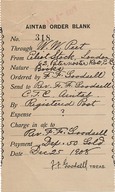 AINTAB ORDER BLANK
No. 318
Through W. W. Peet
From Eliot Stock, London
Nature Books
Ordered by F. F. Goodsell
Send to Rev. F. F. Goodsell
C. T. S. Aintab
By Registered Post
Expense ?
Charge in a/c to
Rev. F. F. Goodsell
Payment Dep. 50 Gold
Date Dec. 21 1908
F. F. Goodsell TREAS.